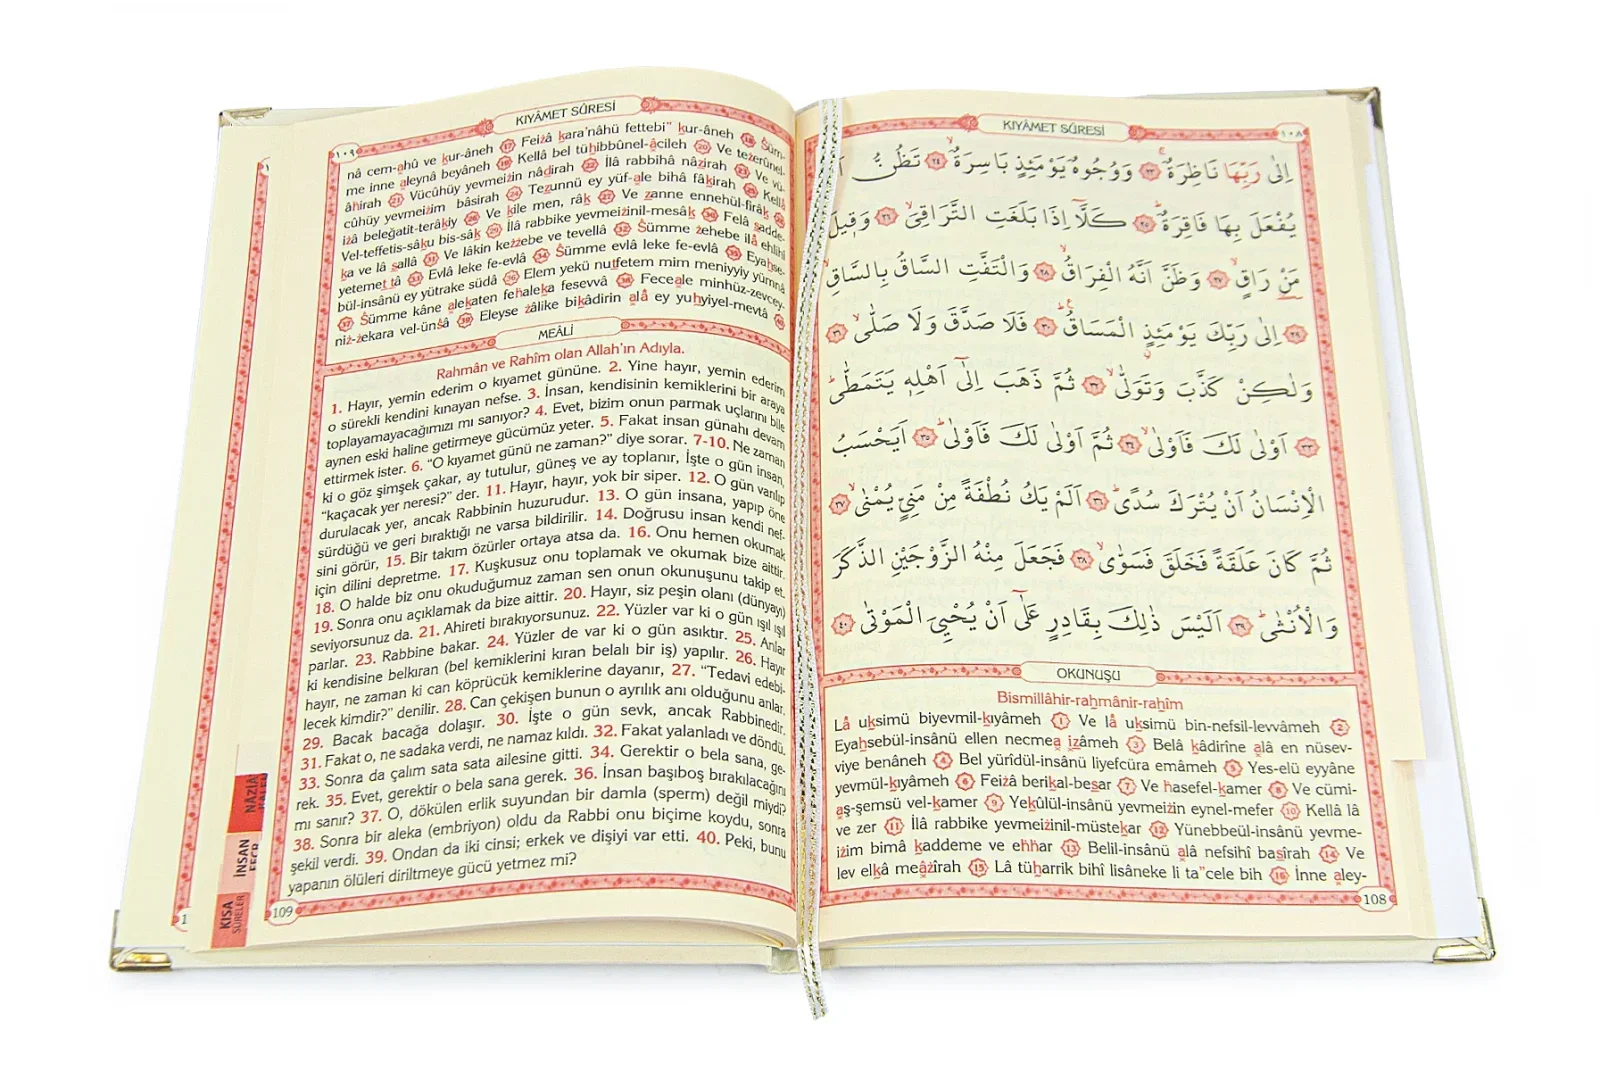 KIYÂMET SÛRESİ
١٠٨
اِلٰى رَبِّهَا نَاظِرَةٌۚ ﴿٢٣﴾ وَوُجُوهٌ يَوْمَئِذٍ بَاسِرَةٌۙ ﴿٢٤﴾ تَظُنُّ
يُفْعَلَ بِهَا فَاقِرَةٌۜ ﴿٢٥﴾ كَلَّٓا اِذَا بَلَغَتِ التَّرَاقِيَۙ ﴿٢٦﴾ وَقٖيلَ
مَنْ رَاقٍۙ ﴿٢٧﴾ وَظَنَّ اَنَّهُ الْفِرَاقُۙ ﴿٢٨﴾ وَالْتَفَّتِ السَّاقُ بِالسَّاقِۙ
﴿٢٩﴾ اِلٰى رَبِّكَ يَوْمَئِذٍ الْمَسَاقُۜ ﴿٣٠﴾ فَلَا صَدَّقَ وَلَا صَلّٰىۙ ﴿٣١﴾
وَلٰكِنْ كَذَّبَ وَتَوَلّٰىۙ ﴿٣٢﴾ ثُمَّ ذَهَبَ اِلٰٓى اَهْلِهٖ يَتَمَطّٰىۜ
﴿٣٣﴾ اَوْلٰى لَكَ فَاَوْلٰىۙ ﴿٣٤﴾ ثُمَّ اَوْلٰى لَكَ فَاَوْلٰىۜ ﴿٣٥﴾ اَيَحْسَبُ
الْاِنْسَانُ اَنْ يُتْرَكَ سُدًىۜ ﴿٣٦﴾ اَلَمْ يَكُ نُطْفَةً مِنْ مَنِيٍّ يُمْنٰىۙ ﴿٣٧﴾
ثُمَّ كَانَ عَلَقَةً فَخَلَقَ فَسَوّٰىۙ ﴿٣٨﴾ فَجَعَلَ مِنْهُ الزَّوْجَيْنِ الذَّكَرَ
وَالْاُنْثٰىۜ ﴿٣٩﴾ اَلَيْسَ ذٰلِكَ بِقَادِرٍ عَلٰٓى اَنْ يُحْيِيَ الْمَوْتٰى ﴿٤٠﴾
OKUNUŞU
Bismillâhir-rahmânir-rahîm
Lâ uksimü biyevmil-kıyâmeh 1 Ve lâ uksimü bin-nefsil-levvâmeh 2
Eyahsebül-insânü ellen necmea izâmeh 3 Belâ kâdirîne alâ en nüsev-
viye benâneh 4 Bel yürîdül-insânü liyefcüra emâmeh 5 Yes-elü eyyâne
yevmül-kıyâmeh 6 Feizâ berikal-besar 7 Ve hasefel-kamer 8 Ve cümi-
aş-şemsü vel-kamer 9 Yekûlül-insânü yevmeizin eynel-mefer 10 Kellâ lâ
ve zer 11 İlâ rabbike yevmeizinil-müstekar 12 Yünebbeül-insânü yevme-
izim bimâ kaddeme ve ehhar 13 Belil-insânü alâ nefsihî basîrah 14 Ve
lev elkâ meâzîrah 15 Lâ tüharrik bihî lisâneke li ta"cele bih 16 İnne aley-
108
KIYÂMET SÛRESİ
١٠٩
nâ cem-ahû ve kur-âneh 17 Feizâ kara'nâhü fettebi" kur-âneh 18 Süm-
me inne aleynâ beyâneh 19 Kellâ bel tühibbûnel-âcileh 20 Ve tezerûnel-
âhirah 21 Vücûhüy yevmeizin nâdirah 22 İlâ rabbihâ nâzirah 23 Ve vü-
cûhüy yevmeizim bâsirah 24 Tezunnü ey yüf-ale bihâ fâkirah 25 Kellâ
izâ beleğatit-terâkiy 26 Ve kîle men, râk 27 Ve zanne ennehül-firâk 28
Vel-teffetis-sâku bis-sâk 29 İlâ rabbike yevmeizinil-mesâk 30 Felâ sadde-
ka ve lâ sallâ 31 Ve lâkin kezzebe ve tevellâ 32 Sümme zehebe ilâ ehlihî
yetemettâ 33 Evlâ leke fe-evlâ 34 Sümme evlâ leke fe-evlâ 35 Eyahse-
bül-insânü ey yütrake südâ 36 Elem yekü nutfetem mim meniyyiy yümnâ
37 Sümme kâne alekaten fehaleka fesevvâ 38 Feceale minhüz-zevcey-
niz-zekara vel-ünsâ 39 Eleyse zâlike bikâdirin alâ ey yuhyiyel-mevtâ 40
MEÂLİ
Rahmân ve Rahîm olan Allah'ın Adıyla.
1. Hayır, yemin ederim o kıyamet gününe. 2. Yine hayır, yemin ederim
o sürekli kendini kınayan nefse. 3. İnsan, kendisinin kemiklerini bir araya
toplayamayacağımızı mı sanıyor? 4. Evet, bizim onun parmak uçlarını bile
aynen eski haline getirmeye gücümüz yeter. 5. Fakat insan günahı devam
ettirmek ister. 6. "O kıyamet günü ne zaman?" diye sorar. 7-10. Ne zaman
ki o göz şimşek çakar, ay tutulur, güneş ve ay toplanır, İşte o gün insan,
"kaçacak yer neresi?" der. 11. Hayır, hayır, yok bir siper. 12. O gün varılıp
durulacak yer, ancak Rabbinin huzurudur. 13. O gün insana, yapıp öne
sürdüğü ve geri bıraktığı ne varsa bildirilir. 14. Doğrusu insan kendi nef-
sini görür, 15. Bir takım özürler ortaya atsa da. 16. Onu hemen okumak
için dilini depretme. 17. Kuşkusuz onu toplamak ve okumak bize aittir.
18. O halde biz onu okuduğumuz zaman sen onun okunuşunu takip et.
19. Sonra onu açıklamak da bize aittir. 20. Hayır, siz peşin olanı (dünyayı)
seviyorsunuz da. 21. Ahireti bırakıyorsunuz. 22. Yüzler var ki o gün ışıl ışıl
parlar. 23. Rabbine bakar. 24. Yüzler de var ki o gün asıktır. 25. Anlar
ki kendisine belkıran (bel kemiklerini kıran belalı bir iş) yapılır. 26. Hayır
hayır, ne zaman ki can köprücük kemiklerine dayanır, 27. "Tedavi edebi-
lecek kimdir?" denilir. 28. Can çekişen bunun o ayrılık anı olduğunu anlar.
29. Bacak bacağa dolaşır. 30. İşte o gün sevk, ancak Rabbinedir.
31. Fakat o, ne sadaka verdi, ne namaz kıldı. 32. Fakat yalanladı ve döndü.
33. Sonra da çalım sata sata ailesine gitti. 34. Gerektir o bela sana, ge-
rek. 35. Evet, gerektir o bela sana gerek. 36. İnsan başıboş bırakılacağını
mı sanır? 37. O, dökülen erlik suyundan bir damla (sperm) değil miydi?
38. Sonra bir aleka (embriyon) oldu da Rabbi onu biçime koydu, sonra
şekil verdi. 39. Ondan da iki cinsi; erkek ve dişiyi var etti. 40. Peki, bunu
yapanın ölüleri diriltmeye gücü yetmez mi?
109
NÂZİA
İNSAN
KISA
SÛRELER